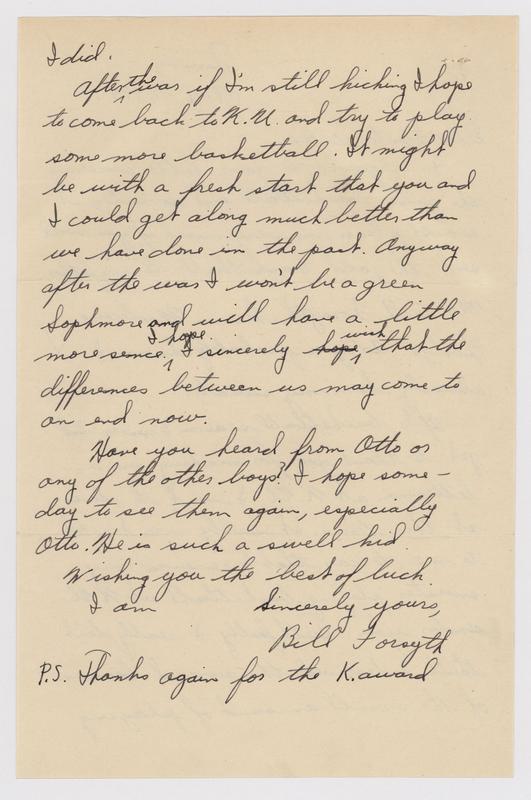 I did.
After the war if I'm still kicking I hope
to come back to K.U. and try to play
some more basketball. It might
be with a fresh start that you and
I could get along much better than
we have done in the past. Anyway
after the war I won't be a green
Sophmore and will have a little
more sence. I hope I sincerely hope wish that the
differences between us may come to
an end now.
Have you heard from Otto or
any of the other boys? I hope some-
day to see them again, especially
Otto. He is such a swell kid.
Wishing you the best of luck.
I am Sincerely yours,
Bill Forsyth
P.S. Thanks again for the K. award